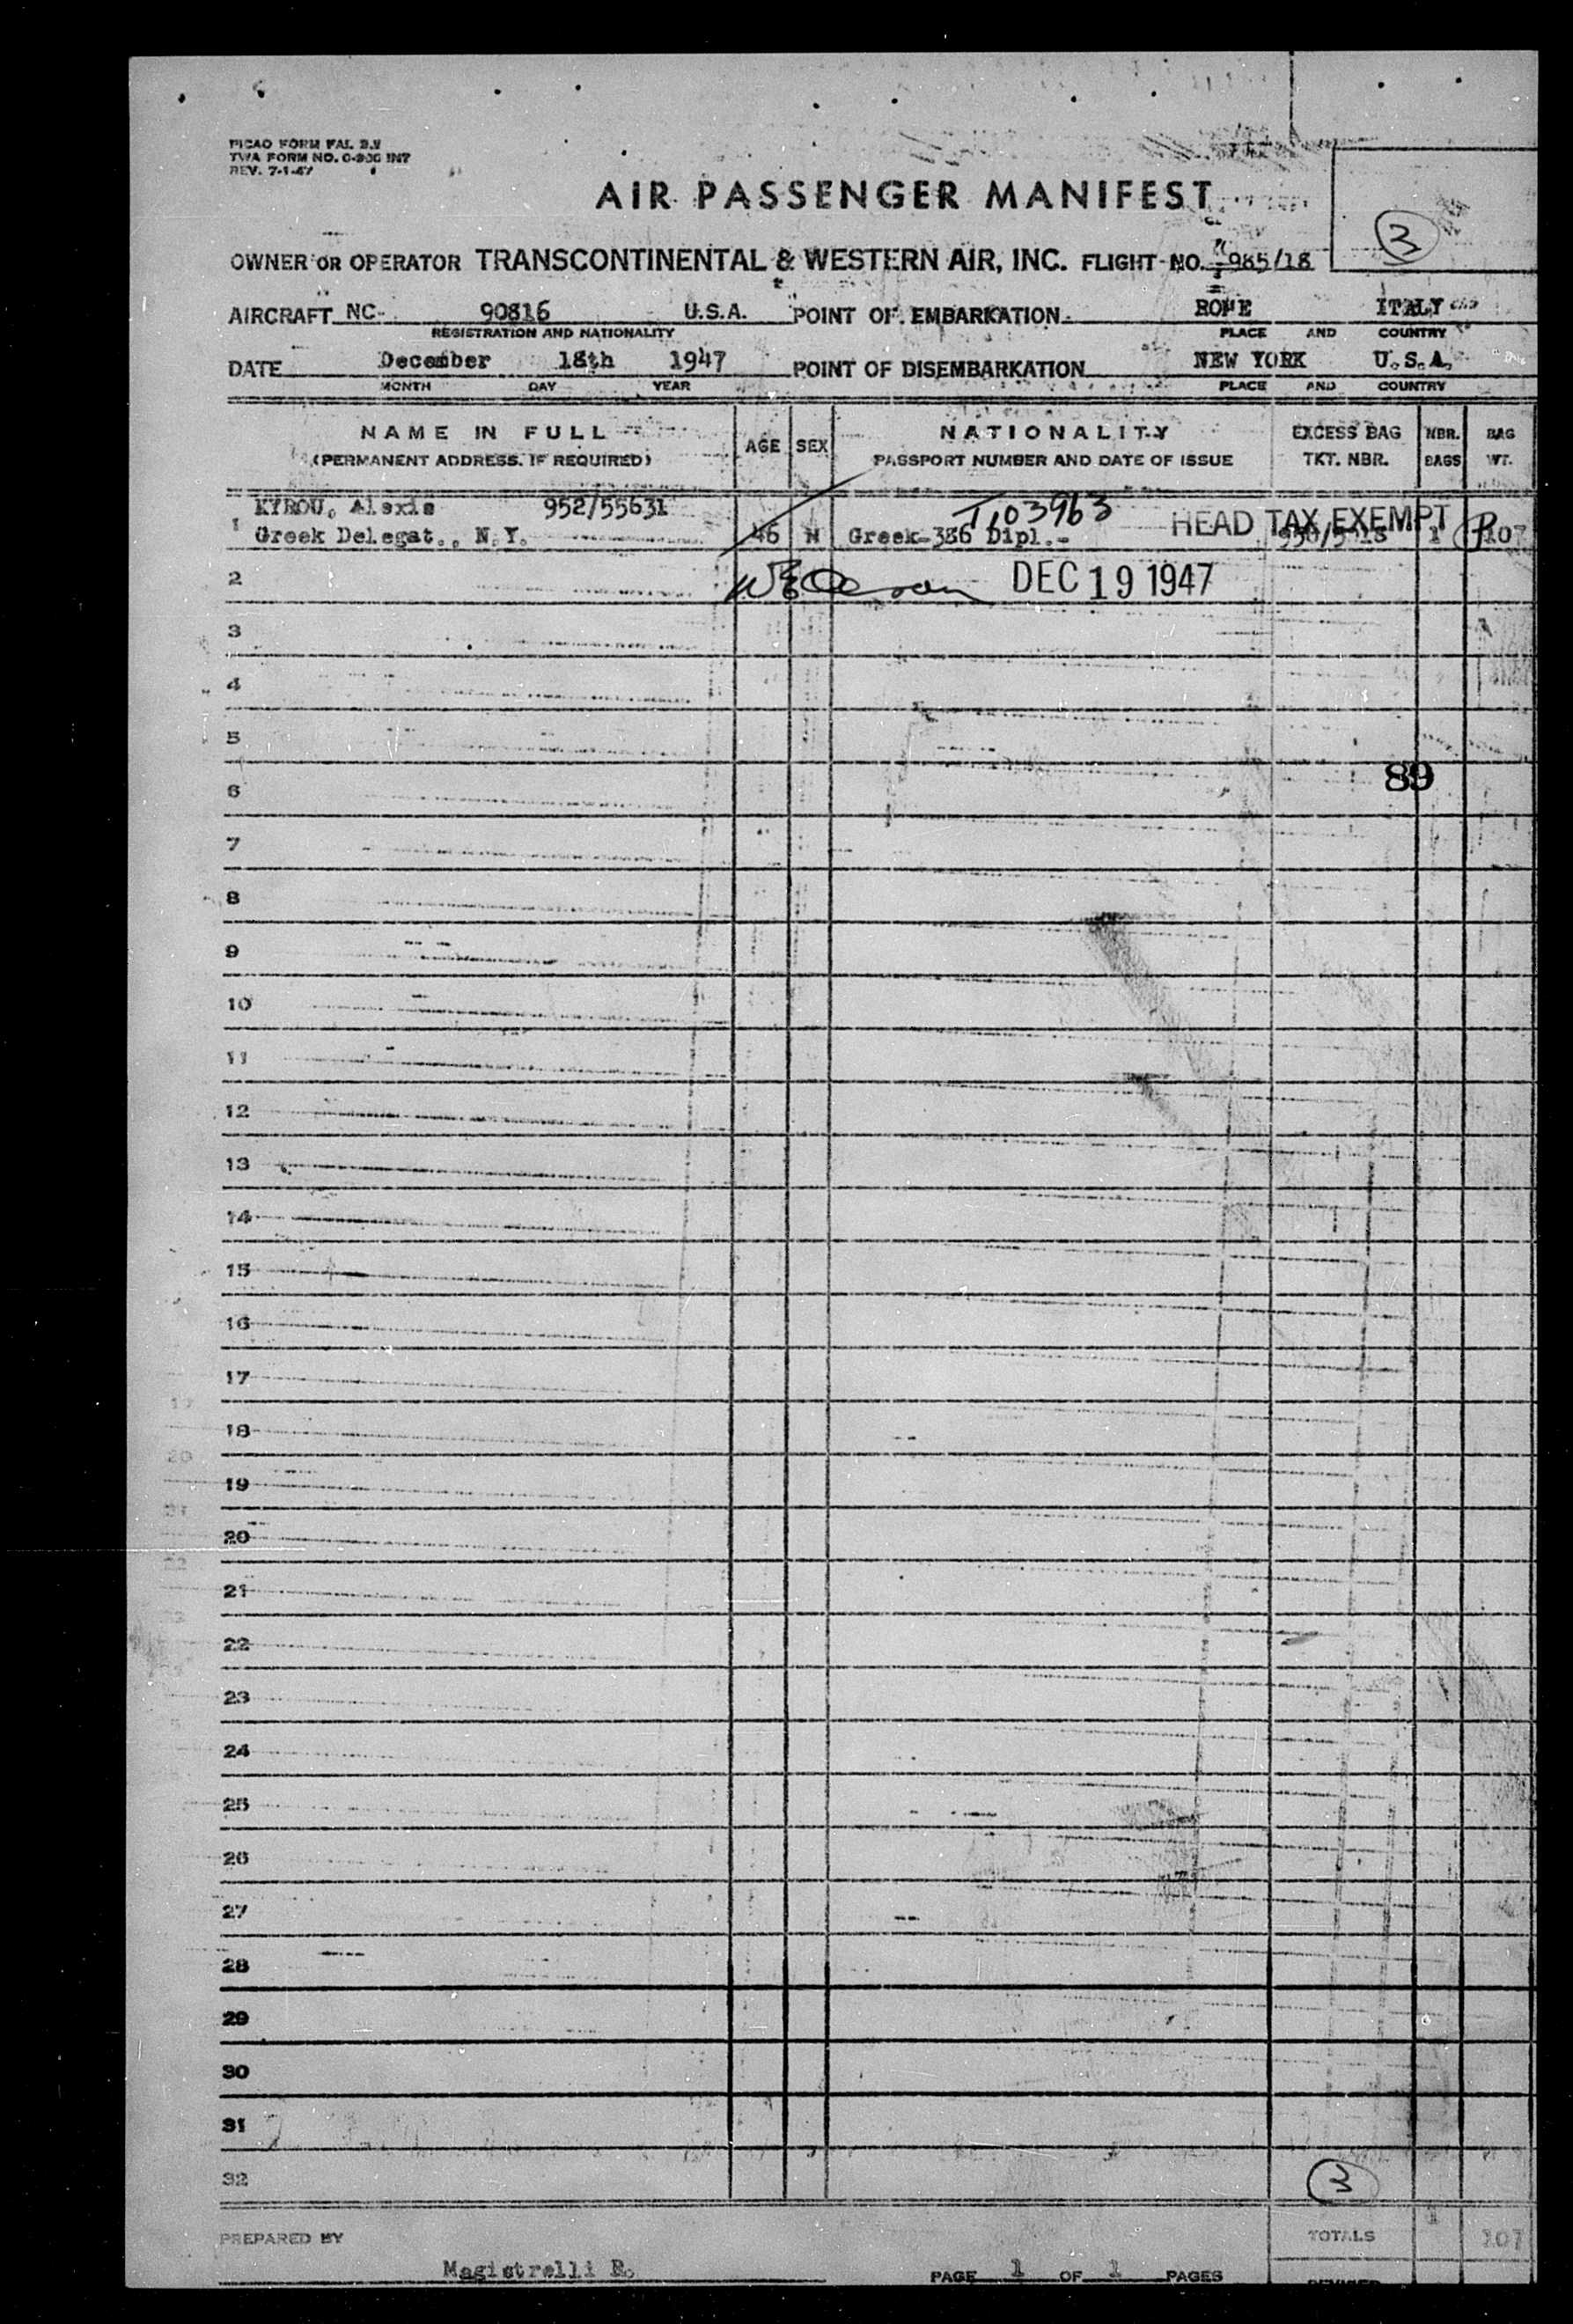 PICAO FORM FAL 2.2
TWA FORM NO. O-200 INT
REV. 7-1-47
AIR PASSENGER MANIFEST
3
OWNER OR OPERATOR TRANSCONTINENTAL & WESTERN AIR, INC. FLIGHT NO. 965/18
AIRCRAFT NC- 90816 U.S.A. POINT OF EMBARKATION ROME ITALY
REGISTRATION AND NATIONALITY PLACE AND COUNTRY
DATE December 18th 1947 POINT OF DISEMBARKATION NEW YORK U.S.A.
MONTH DAY YEAR PLACE AND COUNTRY
NAME IN FULL AGE SEX NATIONALITY EXCESS BAG NBR. BAG
(PERMANENT ADDRESS. IF REQUIRED) PASSPORT NUMBER AND DATE OF ISSUE TKT. NBR. BAGS WT.
KYROU, Alexis 952/55631 T103963 HEAD TAX EXEMPT
1 Greek Delegat., N.Y. 46 M Greek-386 Dipl.- 1 P 107
2 DEC 19 1947
3
4
5
89
6
7
8
9
10
11
12
13
14
15
16
17
18
19
20
21
22
23
24
25
26
27
28
29
30
31
32
3
PREPARED BY TOTALS 1 107
Magistrelli R. PAGE 1 OF 1 PAGES